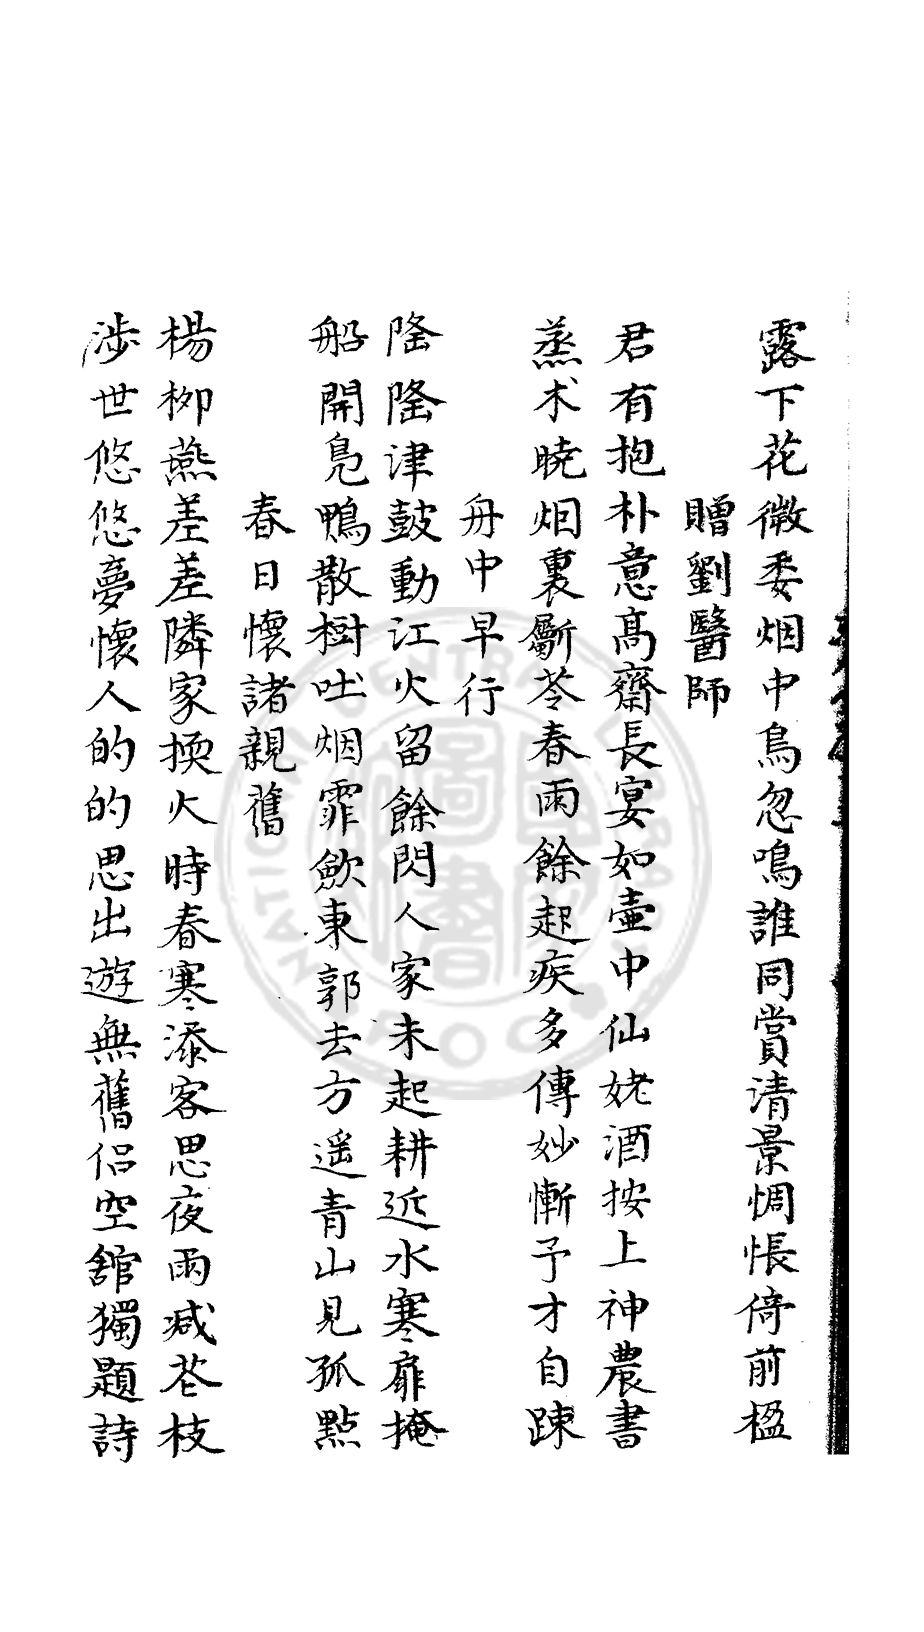 露下花微委烟中鳥忽鳴誰同賞清景惆悵倚前楹
贈劉醫師
君有抱朴意髙齋長宴如壷中仙姥酒按上神農書
蒸术曉烟裏斸苓春雨餘起疾多傳妙慚予才自踈
舟中早行
隆隆津鼓動江火留餘閃人家未起耕近水寒扉掩
船開鳧鴨散樹吐烟霏歛東郭去方遥青山見孤點
春日懷諸親舊
楊栁燕差差隣家換火時春寒添客思夜雨减花枝
涉世悠悠夢懷人的的思出遊無舊侣空舘獨題詩
NATIONAL CENTRAL LIBRARY